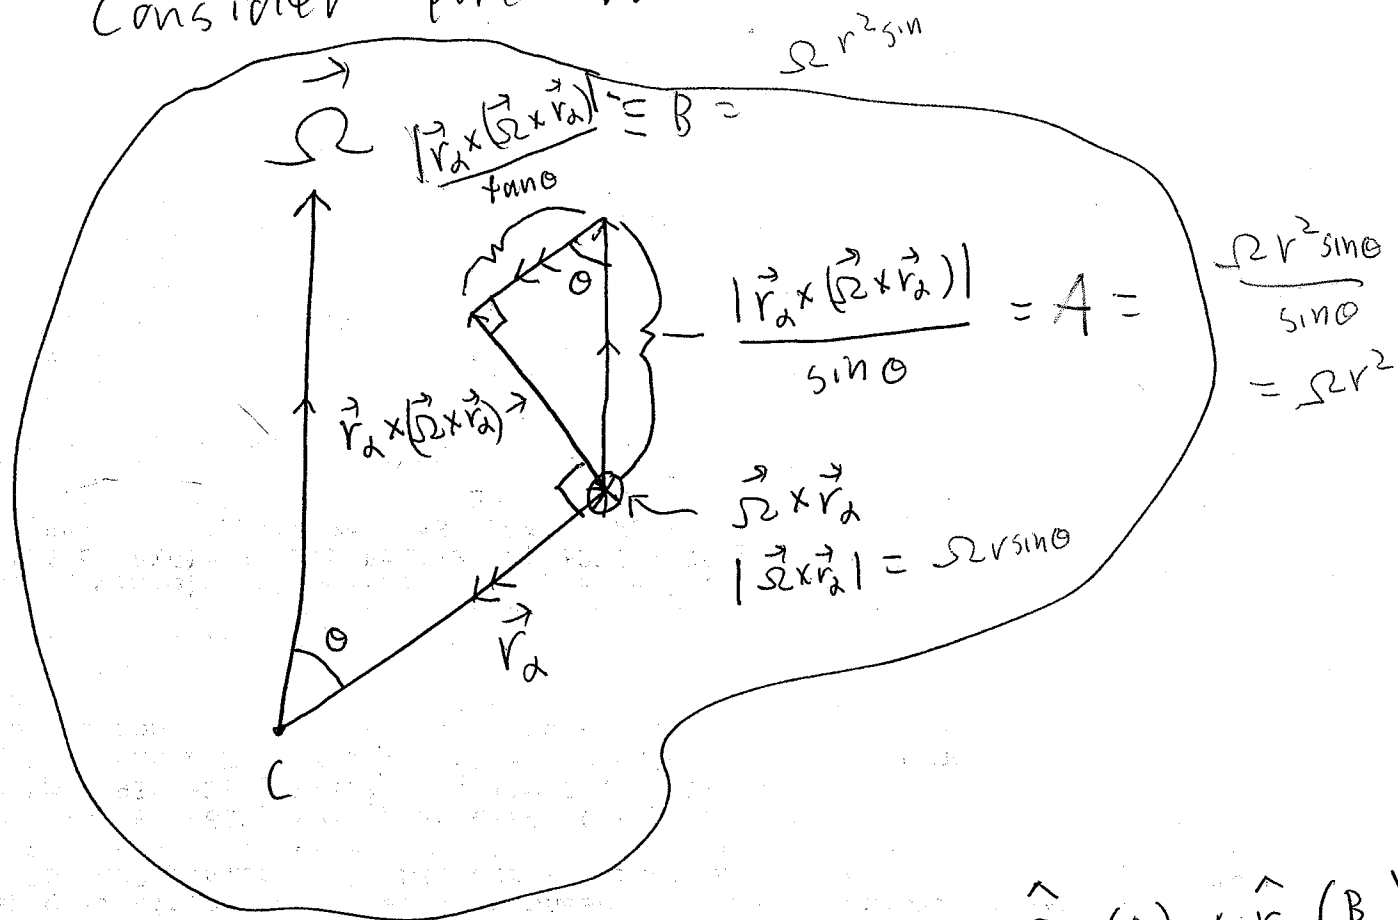 Consider
Ω r² sin
Ω⃗
|r⃗_α×(Ω⃗×r⃗_α)| / tanθ ≡ B =
θ
|r⃗_α×(Ω⃗×r⃗_α)| / sinθ = A = Ωr²sinθ / sinθ
= Ωr²
r⃗_α×(Ω⃗×r⃗_α)
Ω⃗×r⃗_α
|Ω⃗×r⃗_α| = Ωr sinθ
θ
r⃗_α
C
r̂ (B